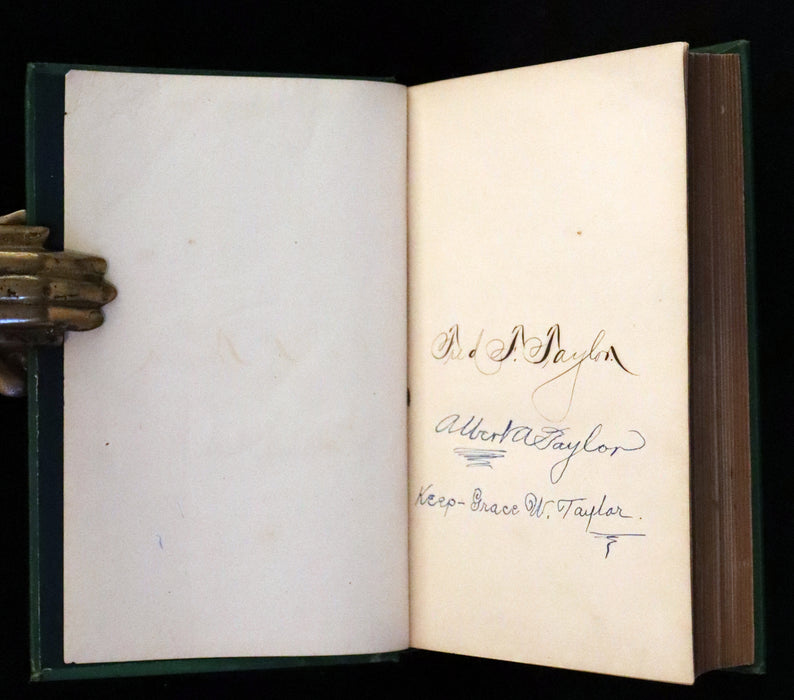 Fred F. Taylor.
Albert A Taylor
Keep - Grace W. Taylor.